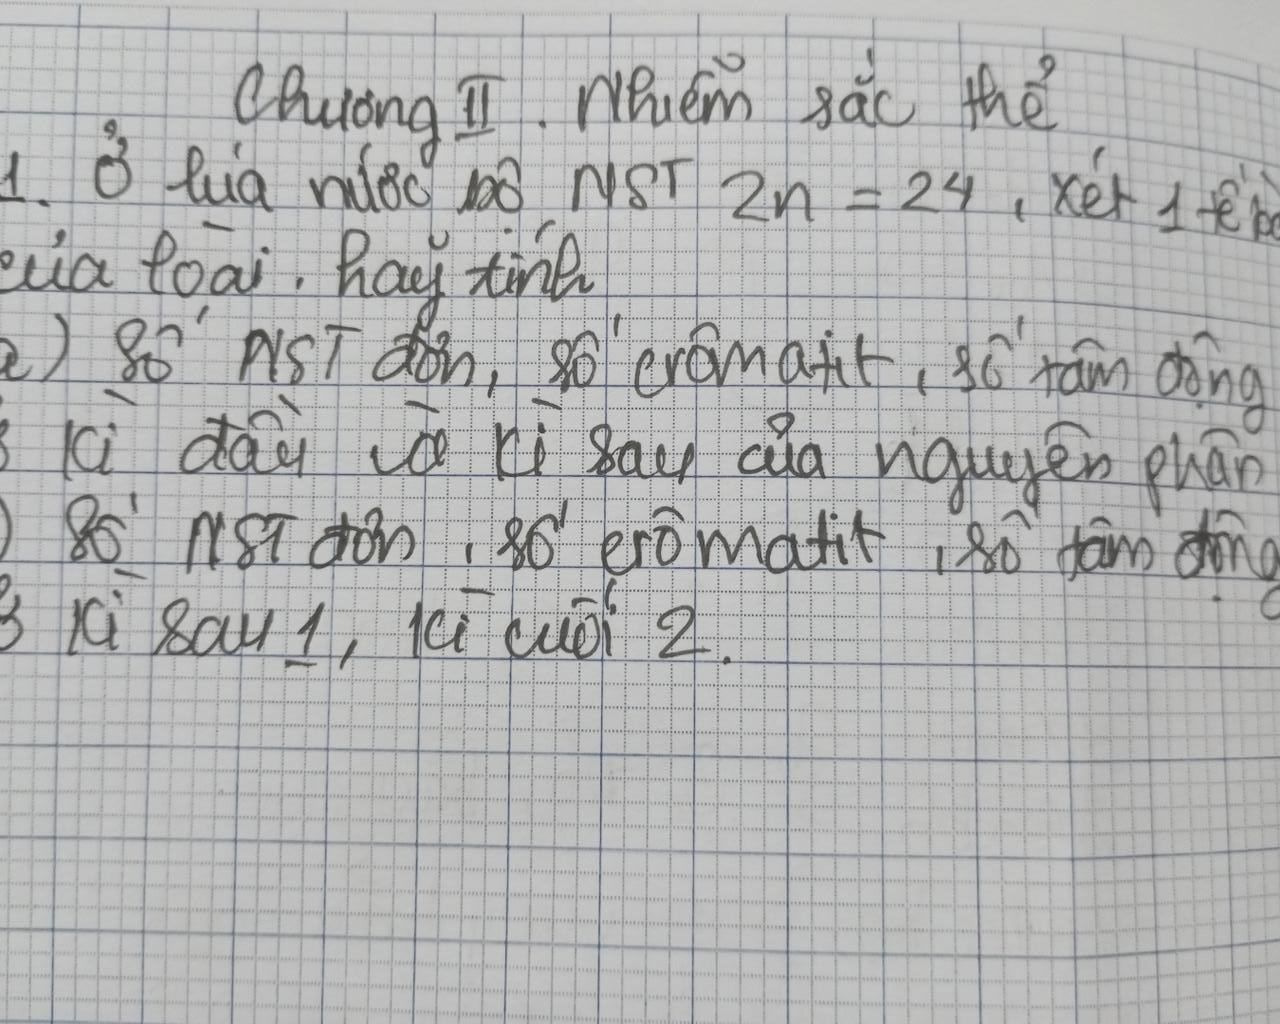 Chương II. Nhiễm sắc thể
1. Ở lúa nước bộ NST 2n = 24, xét 1 tế bà
của loài. hãy tính
a) Số NST đơn, số crômatit, số tâm động
ở kì đầu và kì sau của nguyên phân
) Số NST đơn, số crômatit, số tâm động
ở kì sau 1, kì cuối 2.